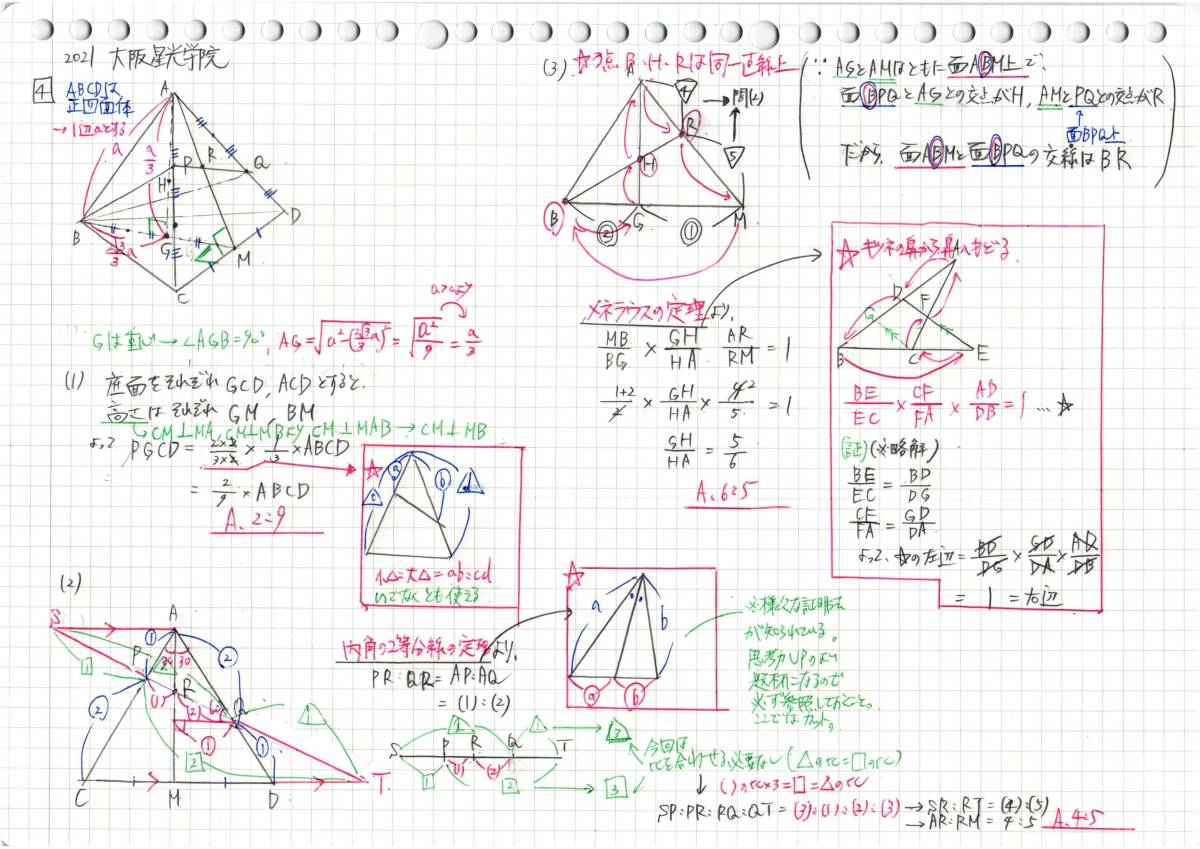 2021 大阪星光学院
4
ABCDは
正四面体
→1辺aとする
A
a
a/3
P
R
Q
H
B
G
D
M
C
√3/3 a
Gは重心→∠AGB=90°, AG=
a>0より
= a/3
(1) 底面をそれぞれ GCD, ACDとすると、
高さはそれぞれ GM, BM
CM⊥MA, CM⊥MBより CM⊥MAB → CM⊥MB
よって PGCD = × 1/3 × ABCD
= 2/9 × ABCD
A. 2:9
☆
小△:大△=ab:cd
(2)
S
A
P
R
Q
C
M
D
T
30
30
内角の2等分線の定理より、
PR:QR = AP:AQ
= (1):(2)
☆
a
b
ⓐ
ⓑ
※様々な証明法
が知られている。
思考力UPのよい
題材になるので
必ず参照しておくこと。
ここではカット。
S P R Q T
今回は
比を合わせる必要なし (△の比=□の比)
↓ ( )の比×3=□=△の比
SP:PR:RQ:QT = (3):(1):(2):(3) → SR:RT = (4):(5)
→ AR:RM = 4:5 A. 4:5
(3)
☆3点 B・H・Rは同一直線上
(∵ AGとAMはともに面ABM上で、
面BPQとAGとの交点がH, AMとPQとの交点がR
面BPQ上
だから、面ABMと面BPQの交線はBR)
A
4
→問(2)
R
5
H
B
G
M
②
①
メネラウスの定理より、
MB/BG × GH/HA × AR/RM = 1
1+2/2 × GH/HA × 4/5 = 1
GH/HA = 5/6
A. 6:5
☆キツネの鼻から鼻へもどる
A
D
F
G
B
C
E
BE/EC × CF/FA × AD/DB = 1 … ☆
(証)(※略解)
BE/EC = BD/DG
CF/FA = GD/DA
よって、☆の左辺 = BD/DG × GD/DA × AD/DB
= 1 = 右辺